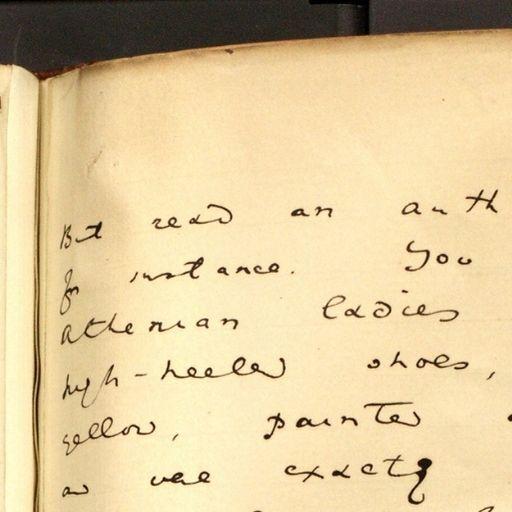 But read an auth
for instance. You
Athenian ladies
high-heeled shoes,
yellow, painted
and were exactly